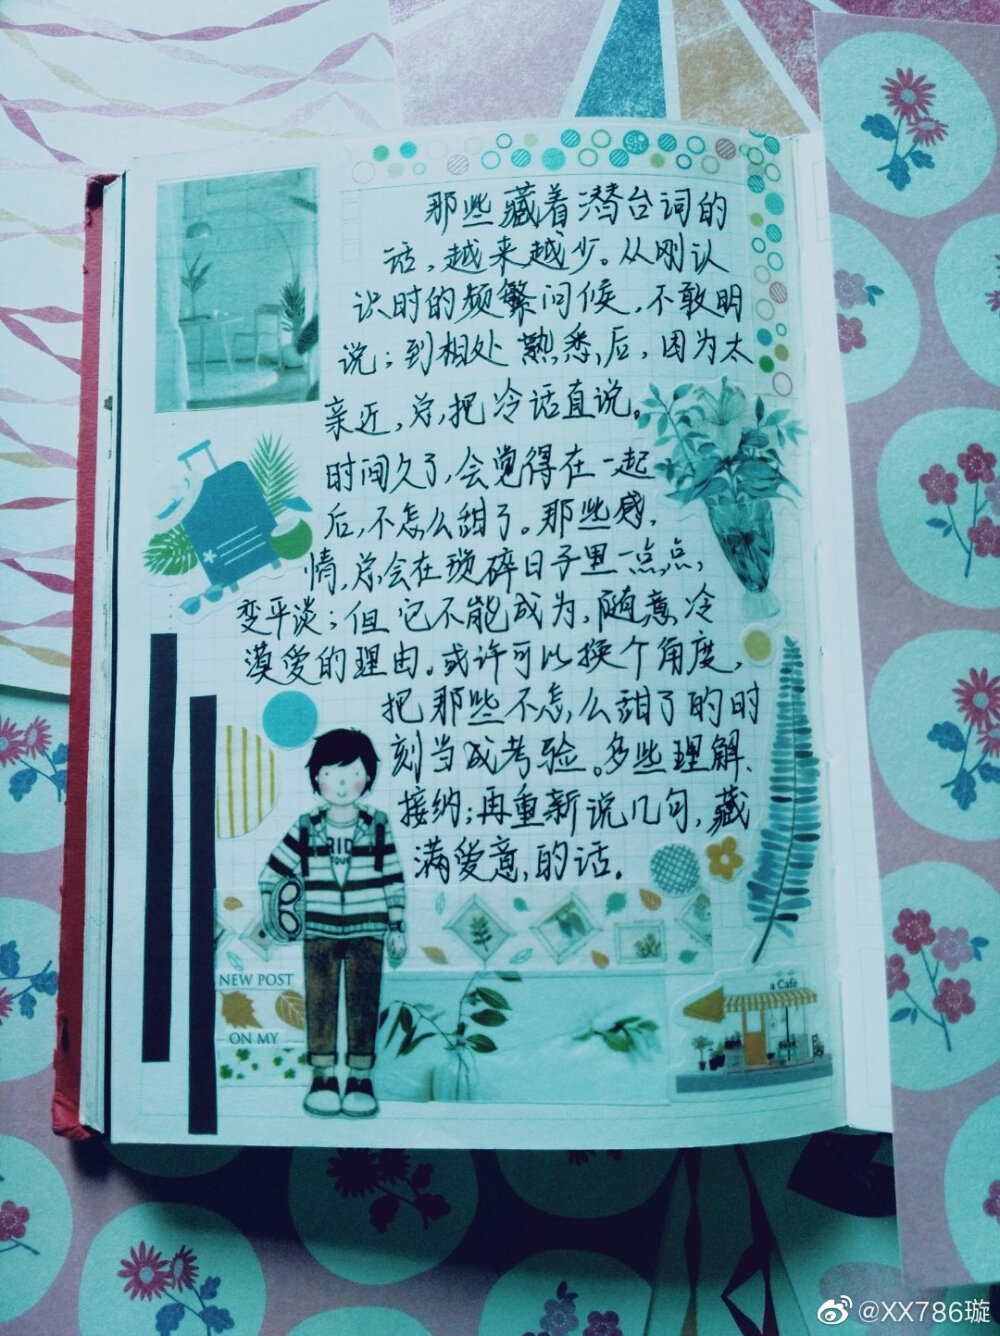 那些藏着潜台词的
话，越来越少。从刚认
识时的频繁问候，不敢明
说；到相处熟悉后，因为太
亲近，总把冷话直说。
时间久了，会觉得在一起
后，不怎么甜了。那些感
情，总会在琐碎日子里一点点，
变平淡；但它不能成为，随意冷
漠爱的理由。或许可以换个角度，
把那些不怎么甜了的时
刻当成考验。多些理解、
接纳；再重新说几句，藏
满爱意，的话。
RID
NEW POST
ON MY
a Café
@XX786璇